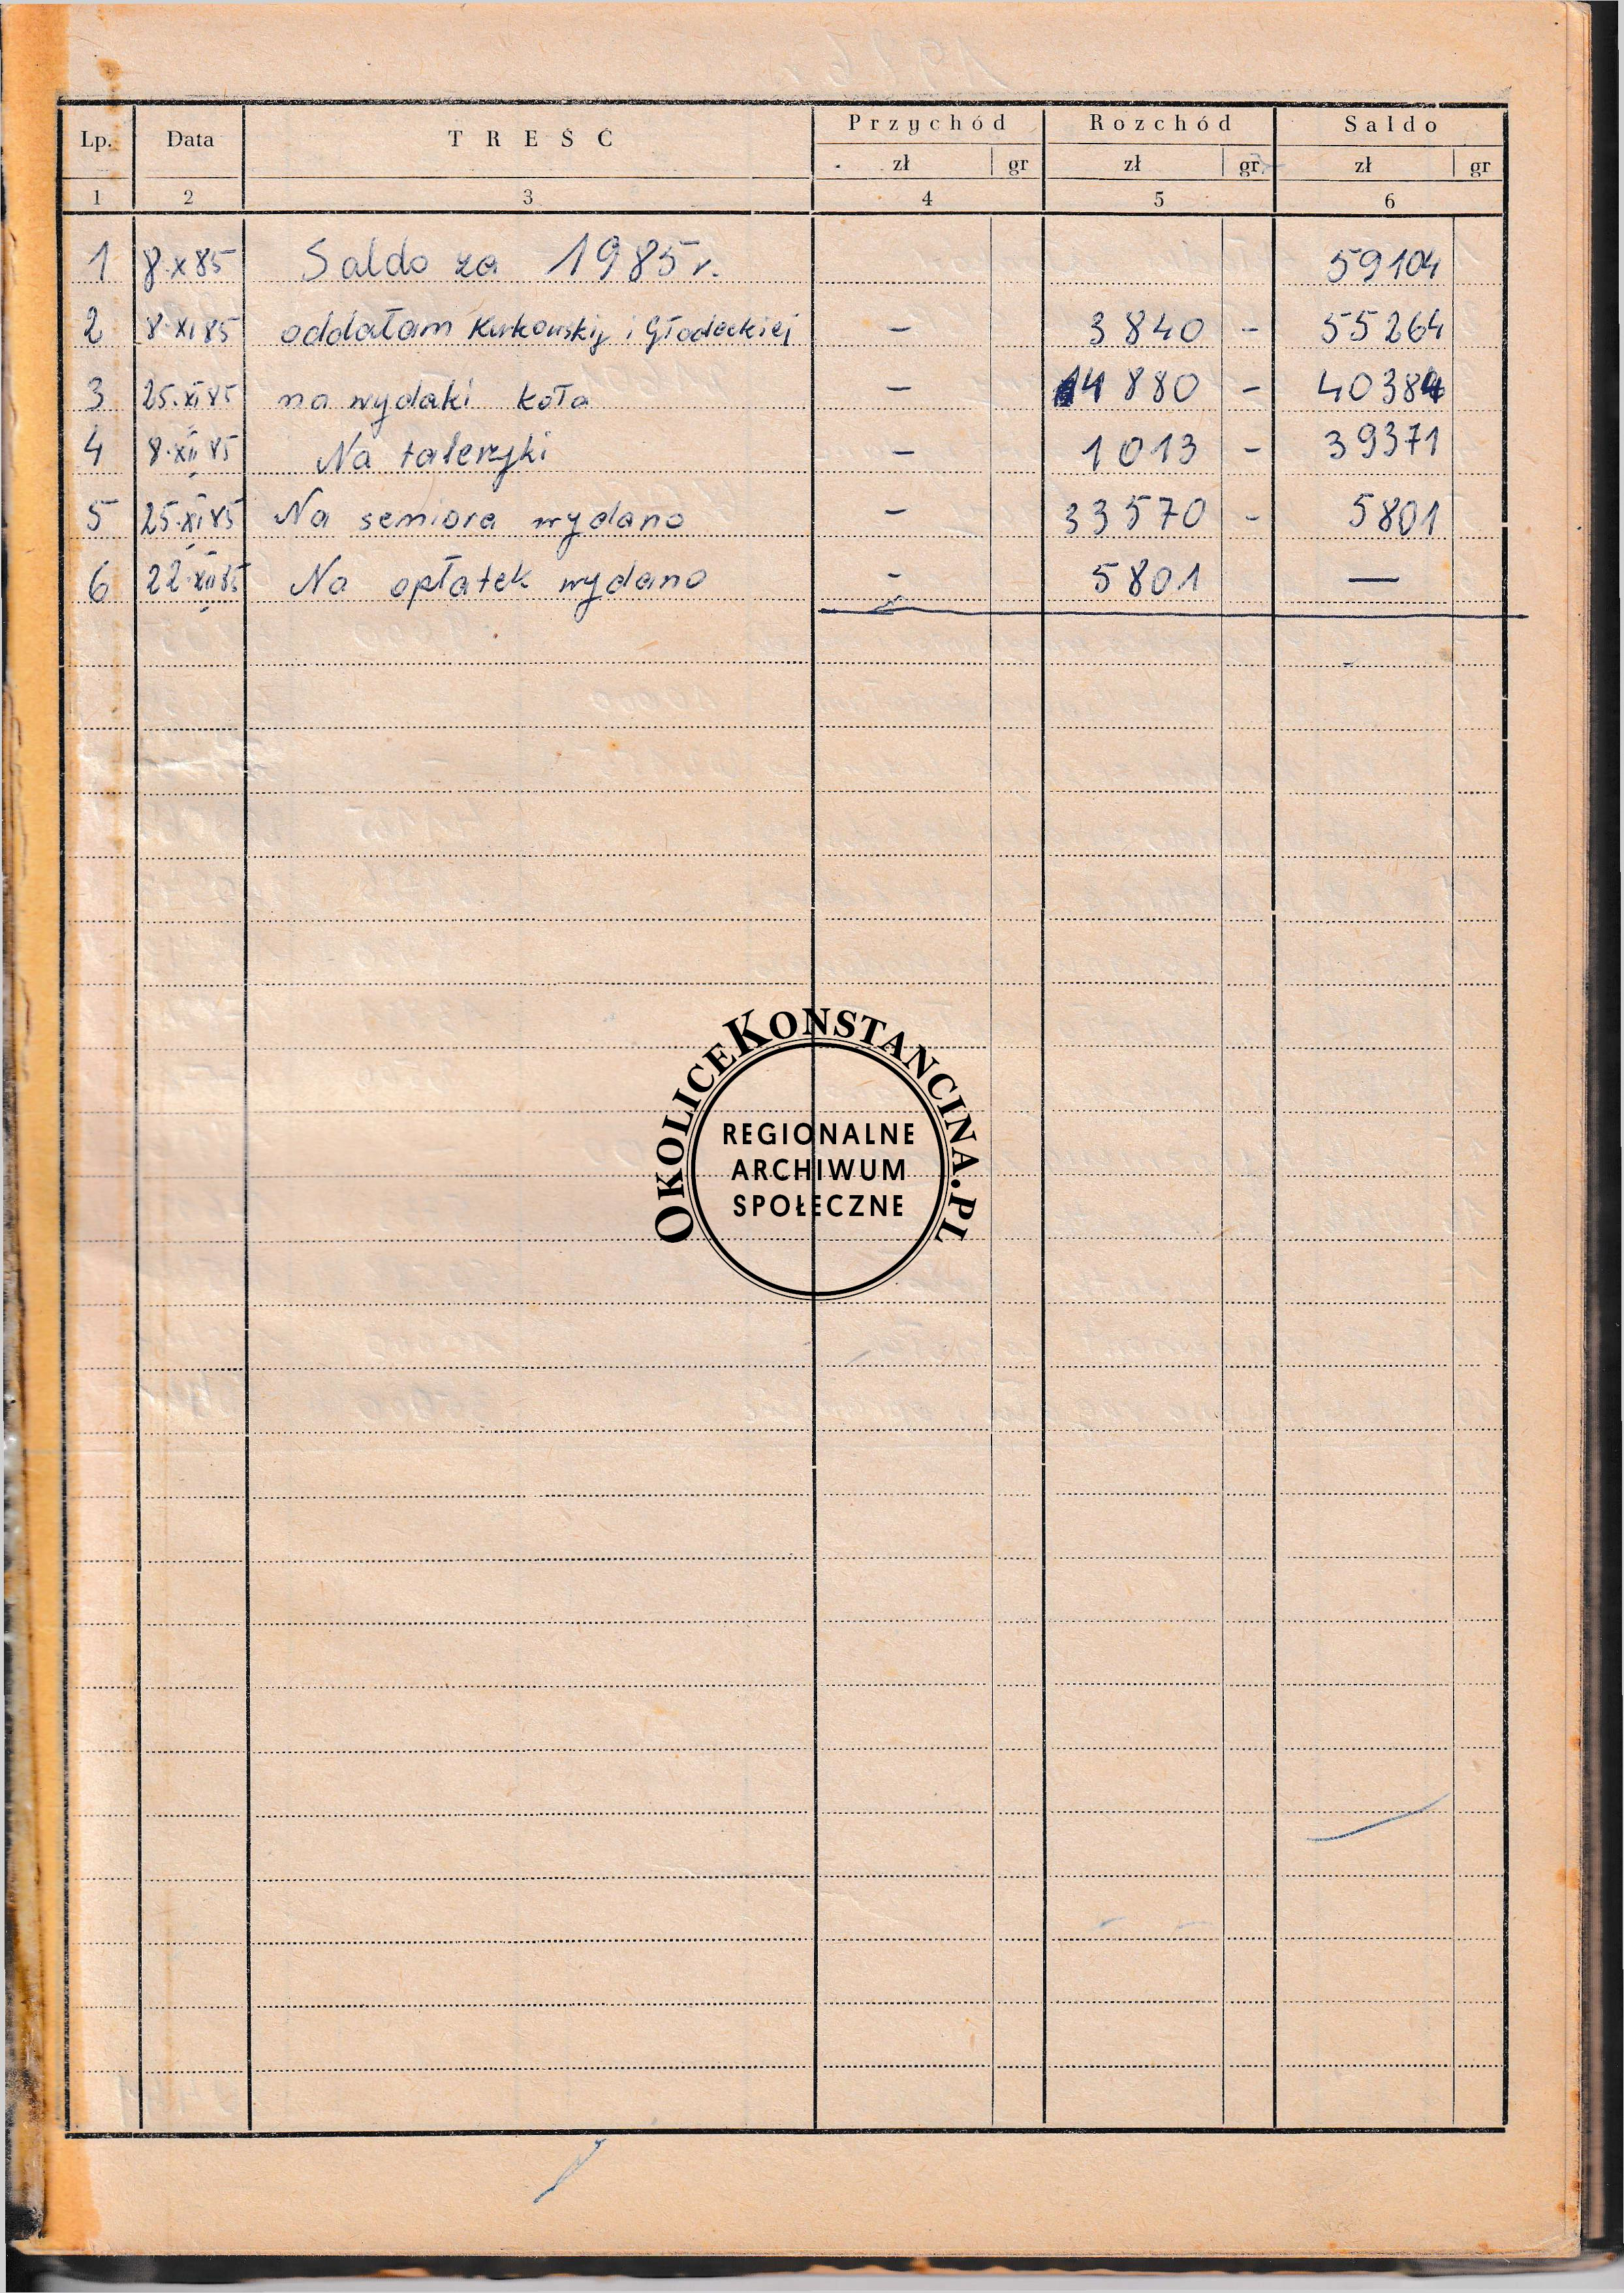 Lp. Data TREŚĆ Przychód Rozchód Saldo
zł gr zł gr zł gr
1 2 3 4 5 6
1 8.X85 Saldo za 1985 r. 59104
2 8.XI85 oddałam Kurkowskij i Głodeckiej – 3840 – 55264
3 25.XI85 na wydaki koła – 14880 – 40384
4 8.XII85 Na talerzyki – 1013 – 39371
5 25.XI85 Na seniora wydano – 33570 – 5801
6 22.XII85 Na opłatek wydano – 5801 —
OKOLICEKONSTANCINA.PL
REGIONALNE
ARCHIWUM
SPOŁECZNE